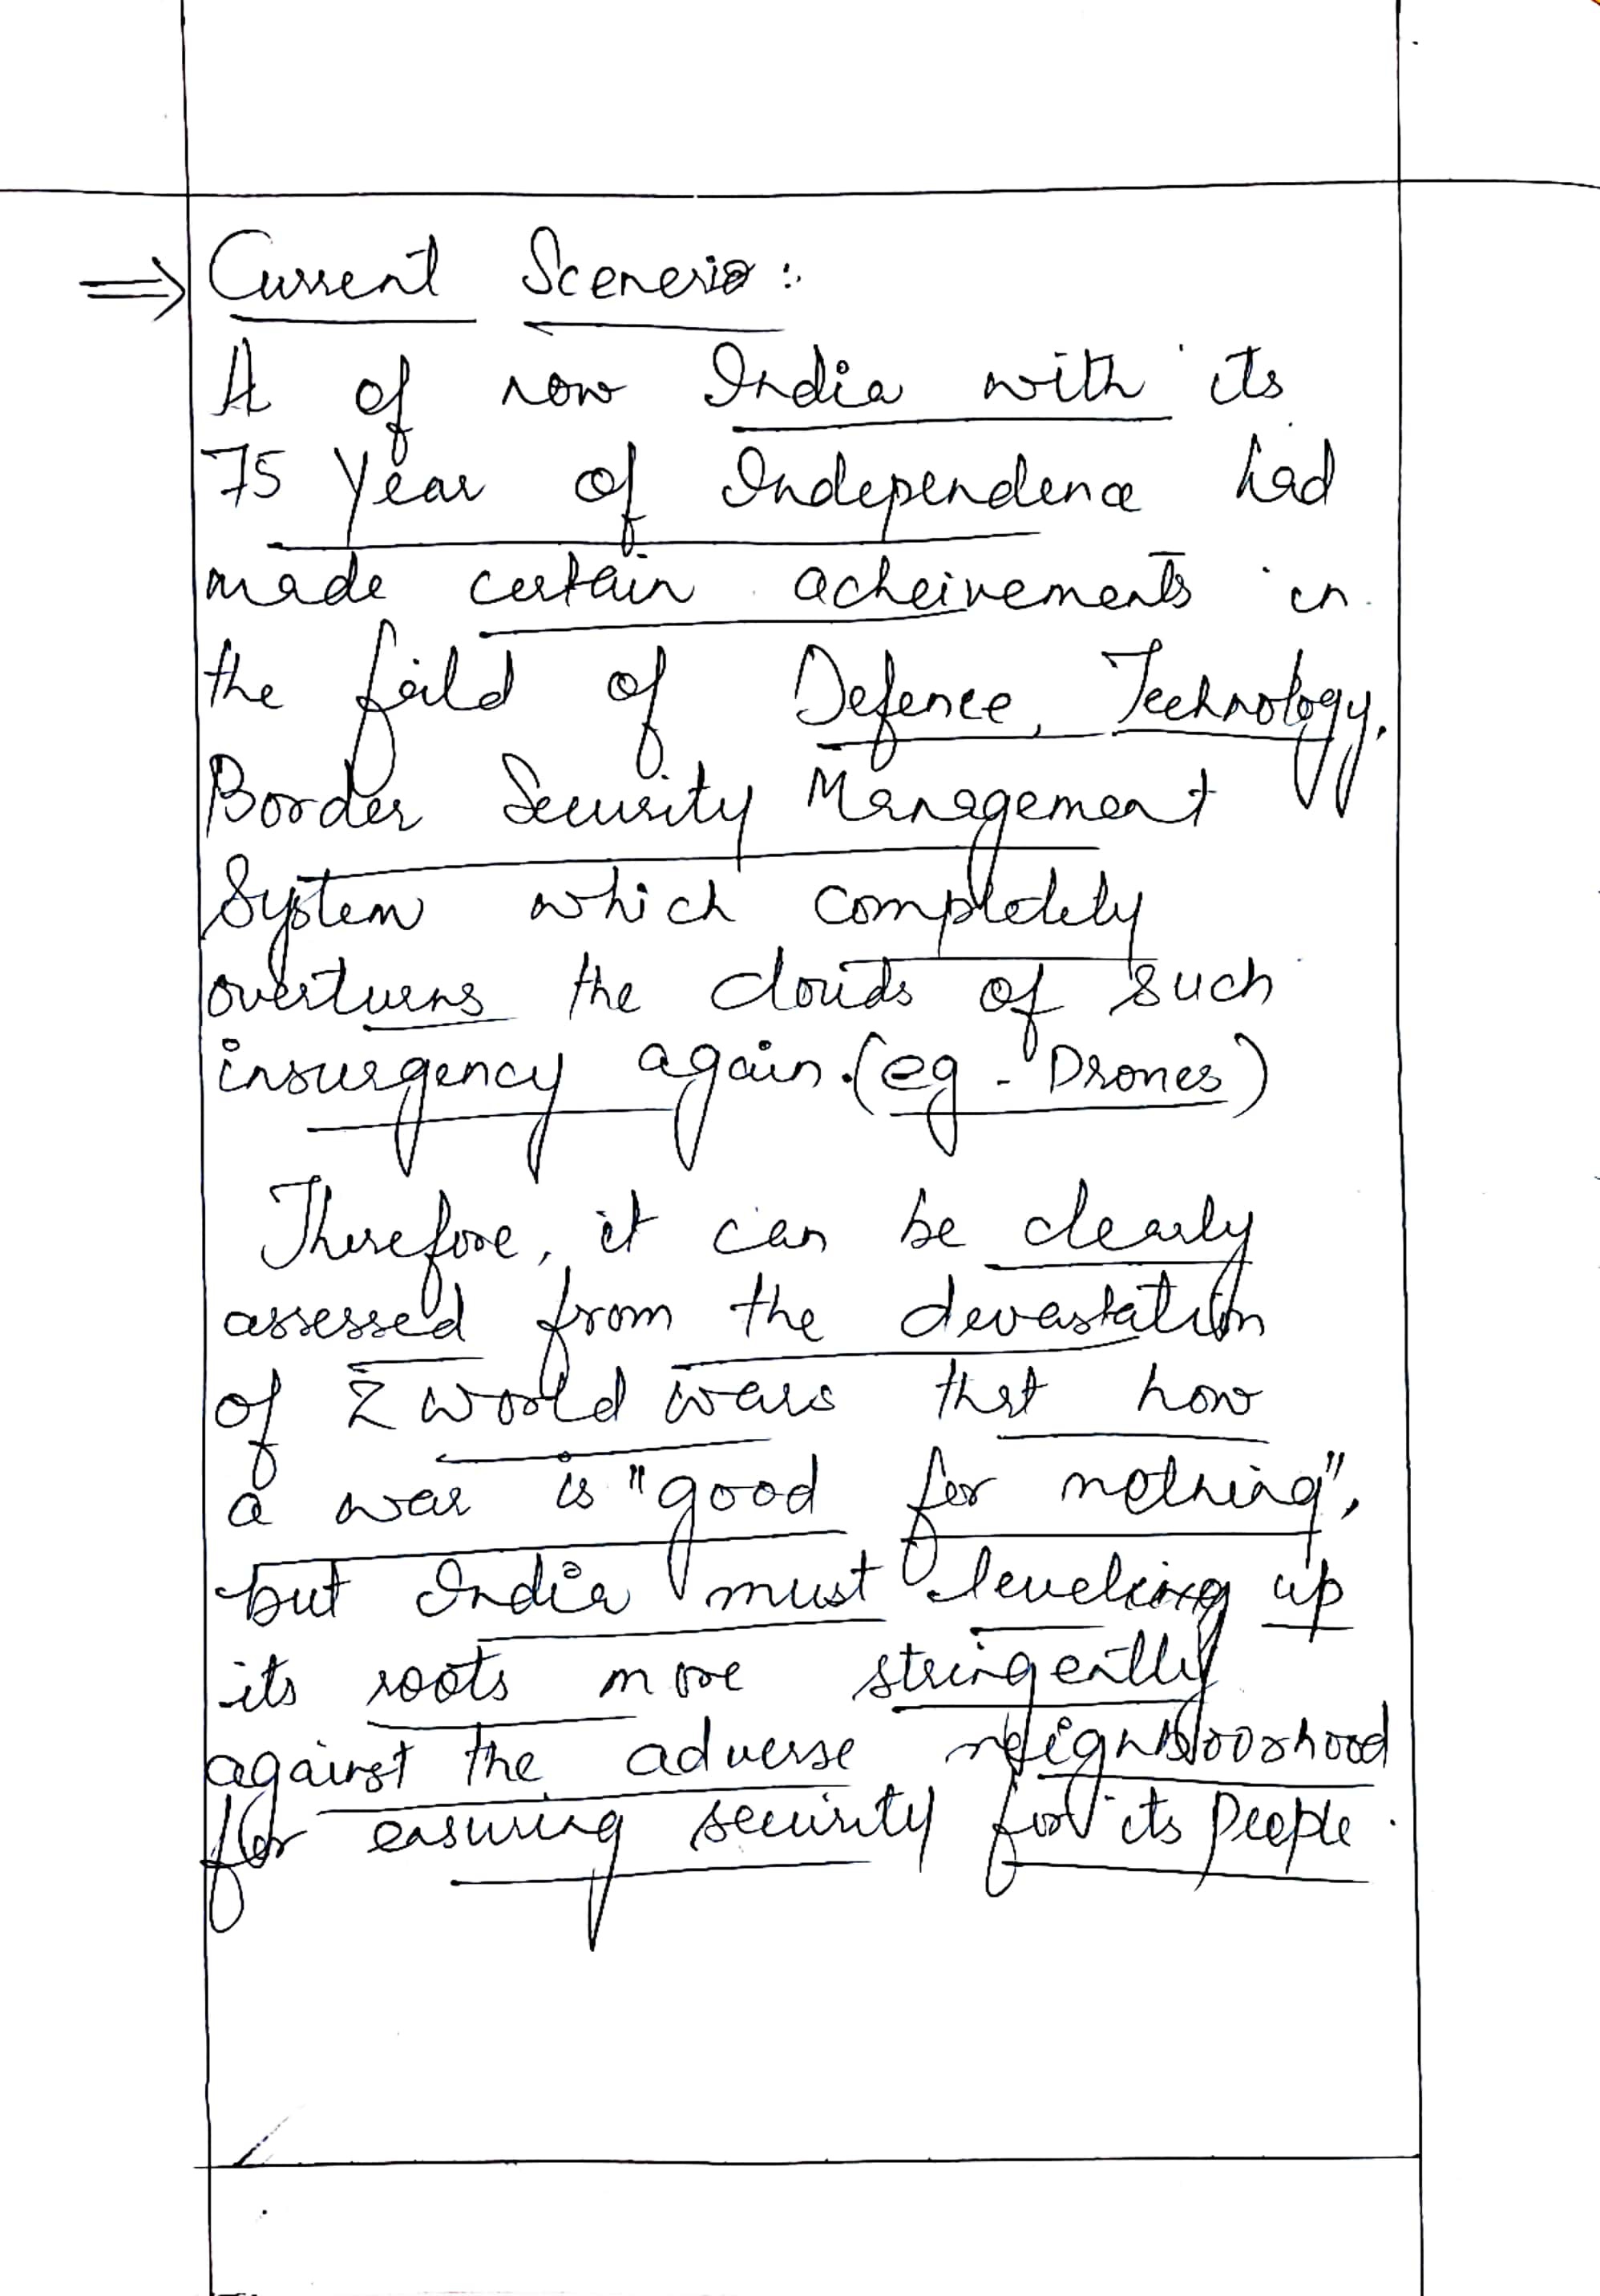 ⇒ Current Scenerio:
A of now India with its
75 Year of Independence had
made certain acheivements in
the feild of Defence, Technology,
Border Security Management
System which completely
overturns the clouds of such
insurgency again. (eg - Drones)
Therefore, it can be clearly
assessed from the devastation
of 2 world wars that how
a war is "good for nothing",
but India must leveling up
its roots more stringently
against the adverse neighbourhood
for ensuring security for its people.